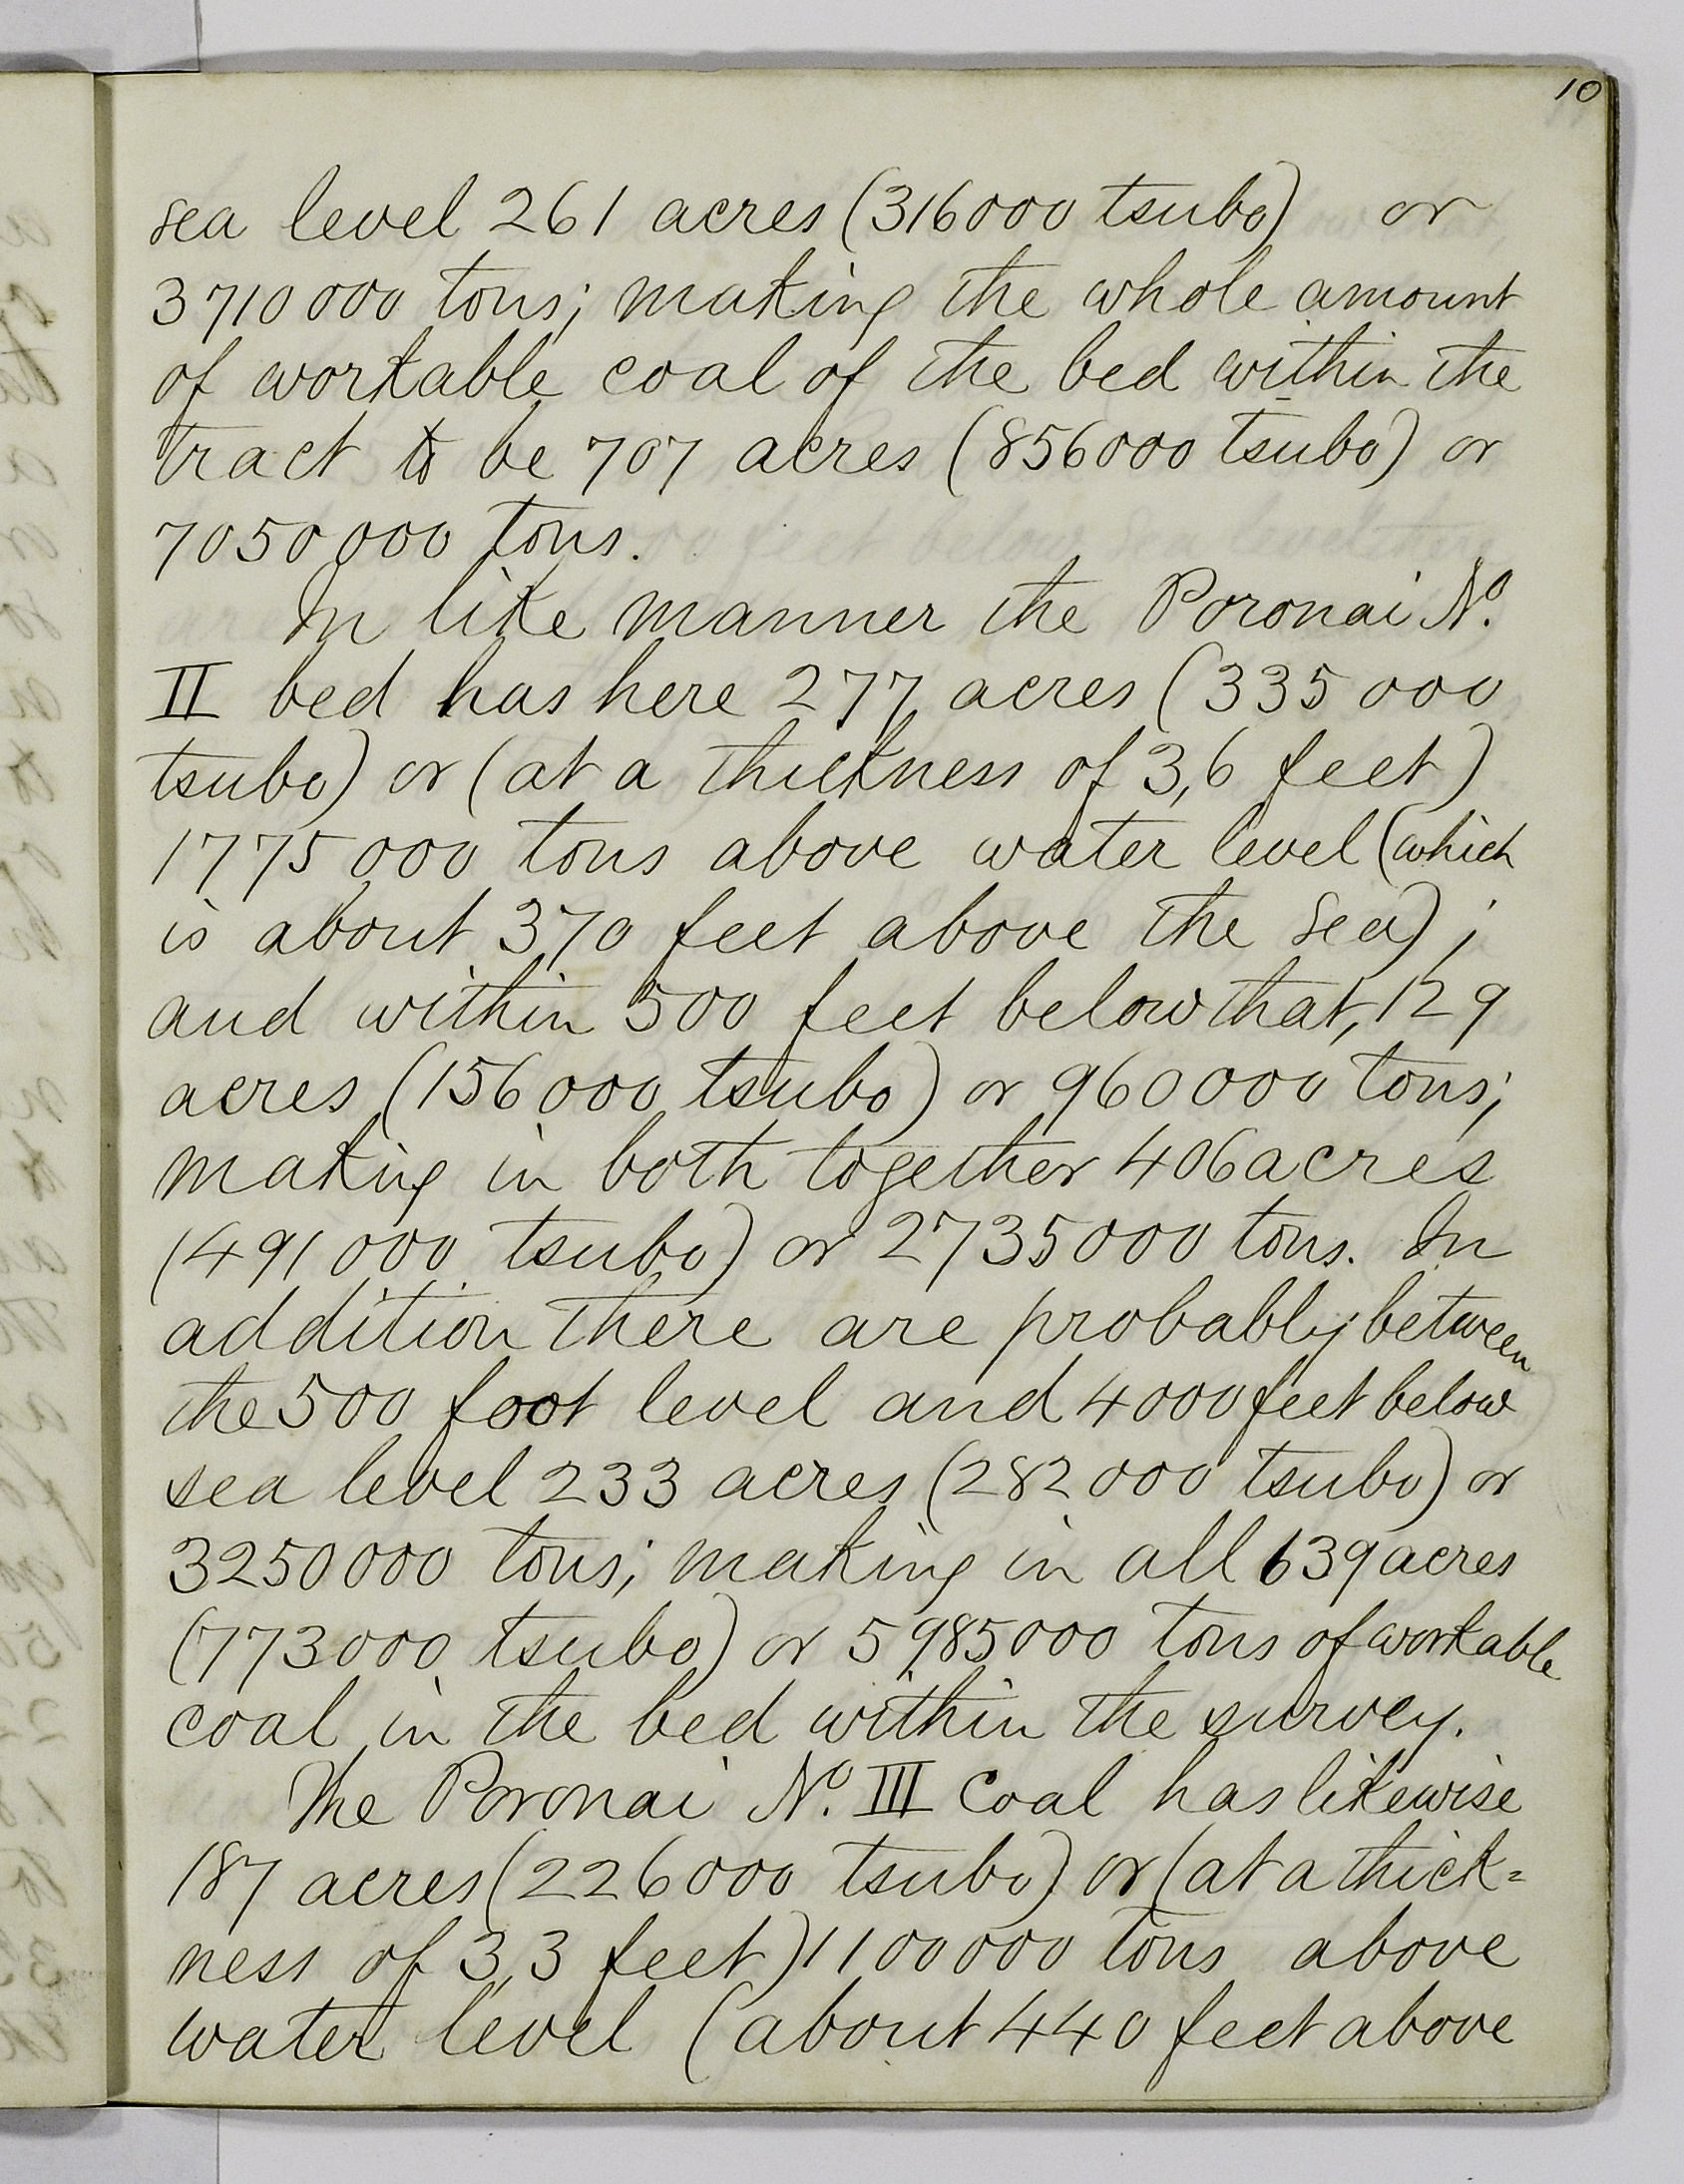 10
sea level 261 acres (316000 tsubo) or
3710000 tons; making the whole amount
of workable coal of the bed within the
tract to be 707 acres (856000 tsubo) or
7050000 tons.
In like manner the Poronai No.
II bed has here 277 acres (335000
tsubo) or (at a thickness of 3,6 feet)
1775000 tons above water level (which
is about 370 feet above the sea);
and within 500 feet below that, 129
acres (156000 tsubo) or 960000 tons;
making in both together 406 acres
(491000 tsubo) or 2735000 tons. In
addition there are probably between
the 500 foot level and 4000 feet below
sea level 233 acres (282000 tsubo) or
3250000 tons; making in all 639 acres
(773000 tsubo) or 5985000 tons of workable
coal in the bed within the survey.
The Poronai No. III Coal has likewise
187 acres (226000 tsubo) or (at a thick=
ness of 3,3 feet) 1100000 tons above
water level (about 440 feet above